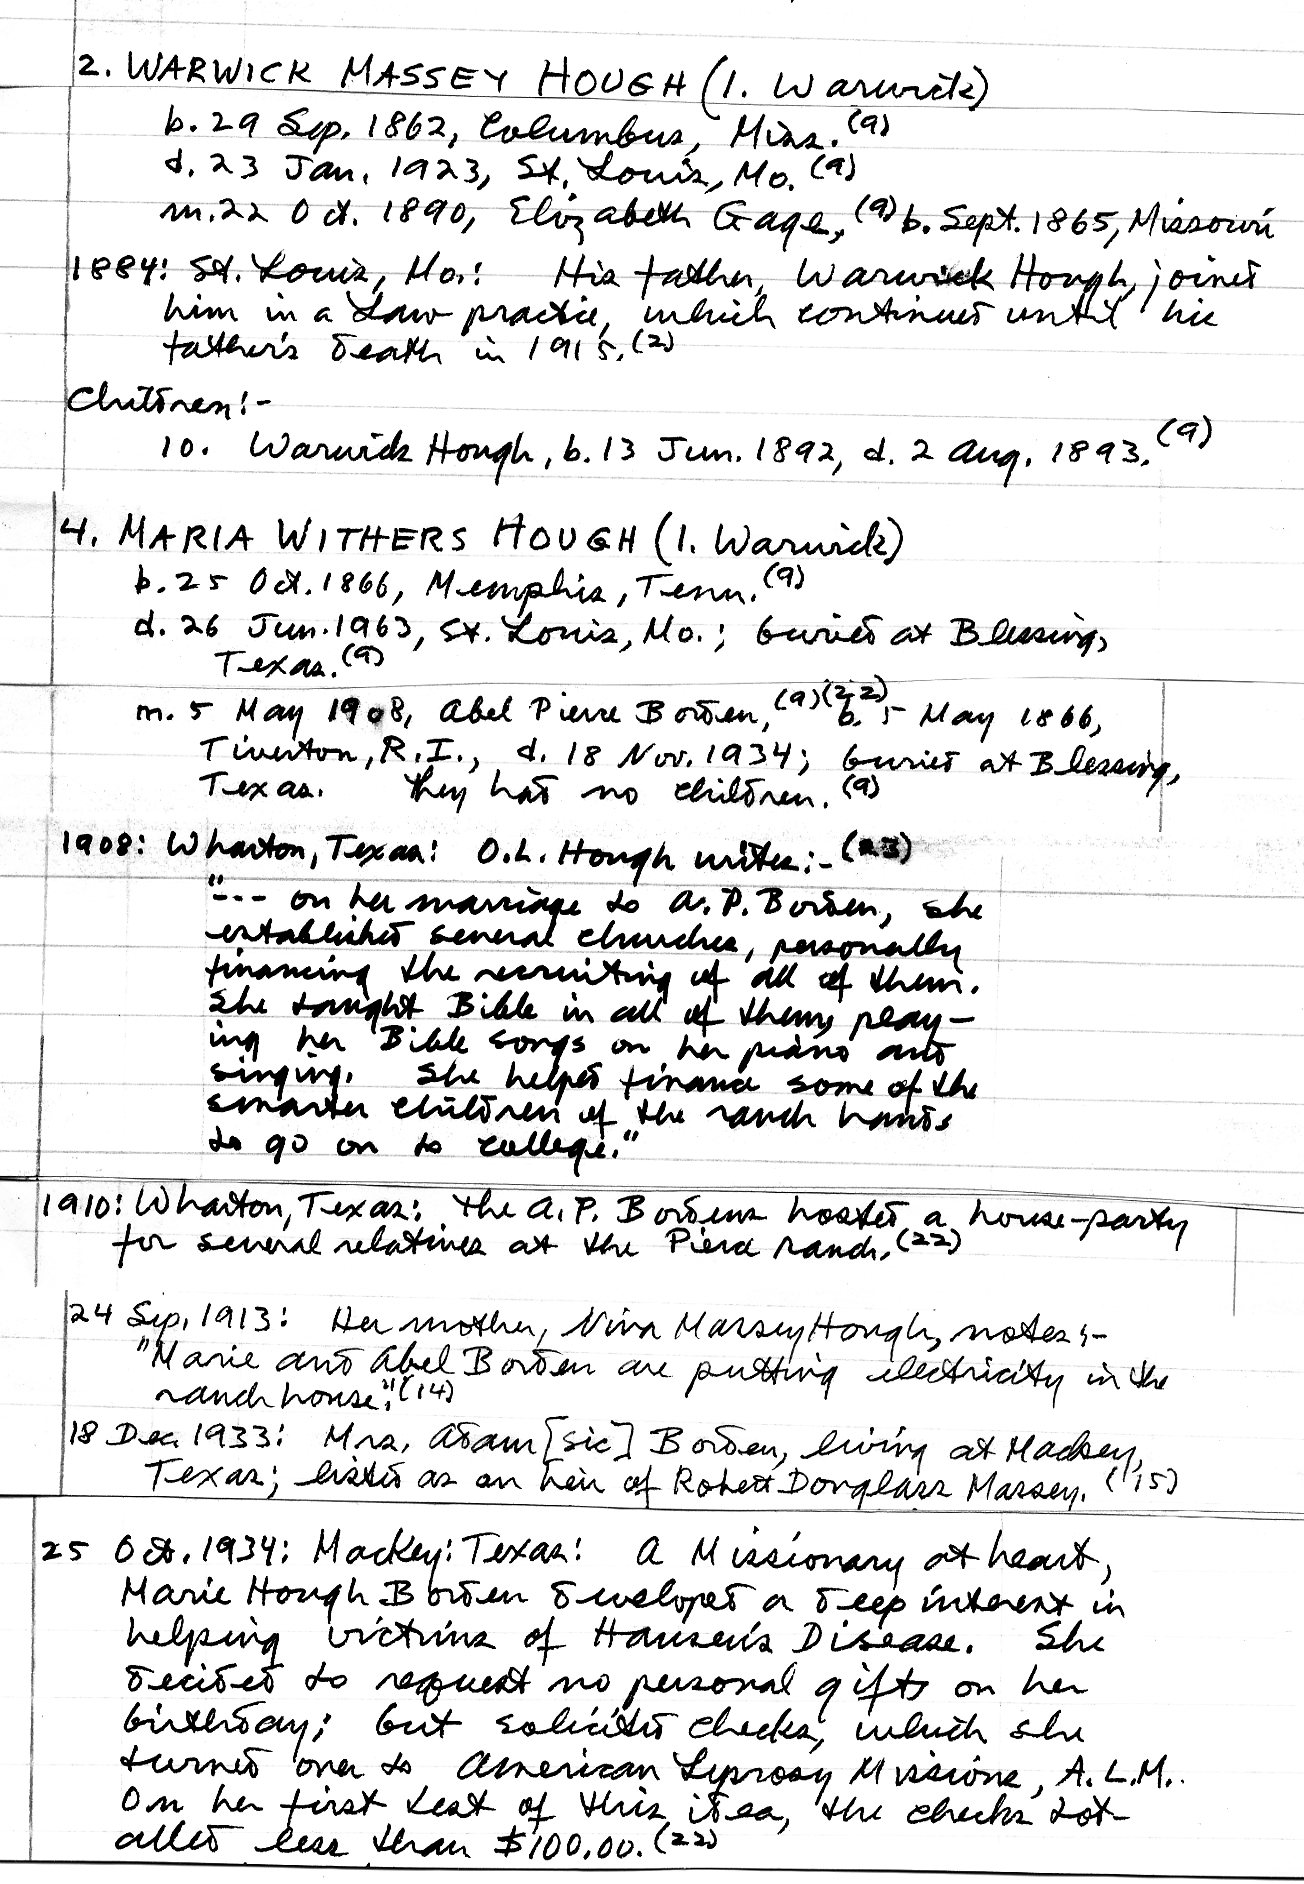 2. WARWICK MASSEY HOUGH (1. Warwick)
b. 29 Sep. 1862, Columbus, Miss. (9)
d. 23 Jan. 1923, St. Louis, Mo. (9)
m. 22 Oct. 1890, Elizabeth Gage, (9) b. Sept. 1865, Missouri
1884: St. Louis, Mo.: His father, Warwick Hough, joined
him in a Law practice, which continued until his
father's death in 1915. (2)
Children:-
10. Warwick Hough, b. 13 Jun. 1892, d. 2 Aug. 1893. (9)
4. MARIA WITHERS HOUGH (1. Warwick)
b. 25 Oct. 1866, Memphis, Tenn. (9)
d. 26 Jun. 1963, St. Louis, Mo.; buried at Blessing,
Texas. (9)
m. 5 May 1908, Abel Pierce Borden, (9)(22) b. 5 May 1866,
Tiverton, R.I., d. 18 Nov. 1934; buried at Blessing,
Texas. They had no children. (9)
1908: Wharton, Texas: O.L. Hough writes:- (23)
"--- on her marriage to A.P. Borden, she
established several churches, personally
financing the recruiting of all of them.
She taught Bible in all of them, play-
ing her Bible songs on her piano and
singing. She helped finance some of the
smarter children of the ranch hands
to go on to college."
1910: Wharton, Texas: The A.P. Bordens hosted a house-party
for several relatives at the Pierce ranch. (22)
24 Sep. 1913: Her mother, Nina Massey Hough, notes:-
"Marie and Abel Borden are putting electricity in the
ranch house." (14)
18 Dec. 1933: Mrs. Adam [sic] Borden, living at Mackey,
Texas; listed as an heir of Robert Douglass Massey. (15)
25 Oct. 1934: Mackey: Texas: A Missionary at heart,
Marie Hough Borden developed a deep interest in
helping victims of Hansen's Disease. She
decided to request no personal gifts on her
birthday; but solicited checks, which she
turned over to American Leprosy Missions, A.L.M.
On her first test of this idea, the checks tot-
alled less than $100.00. (22)